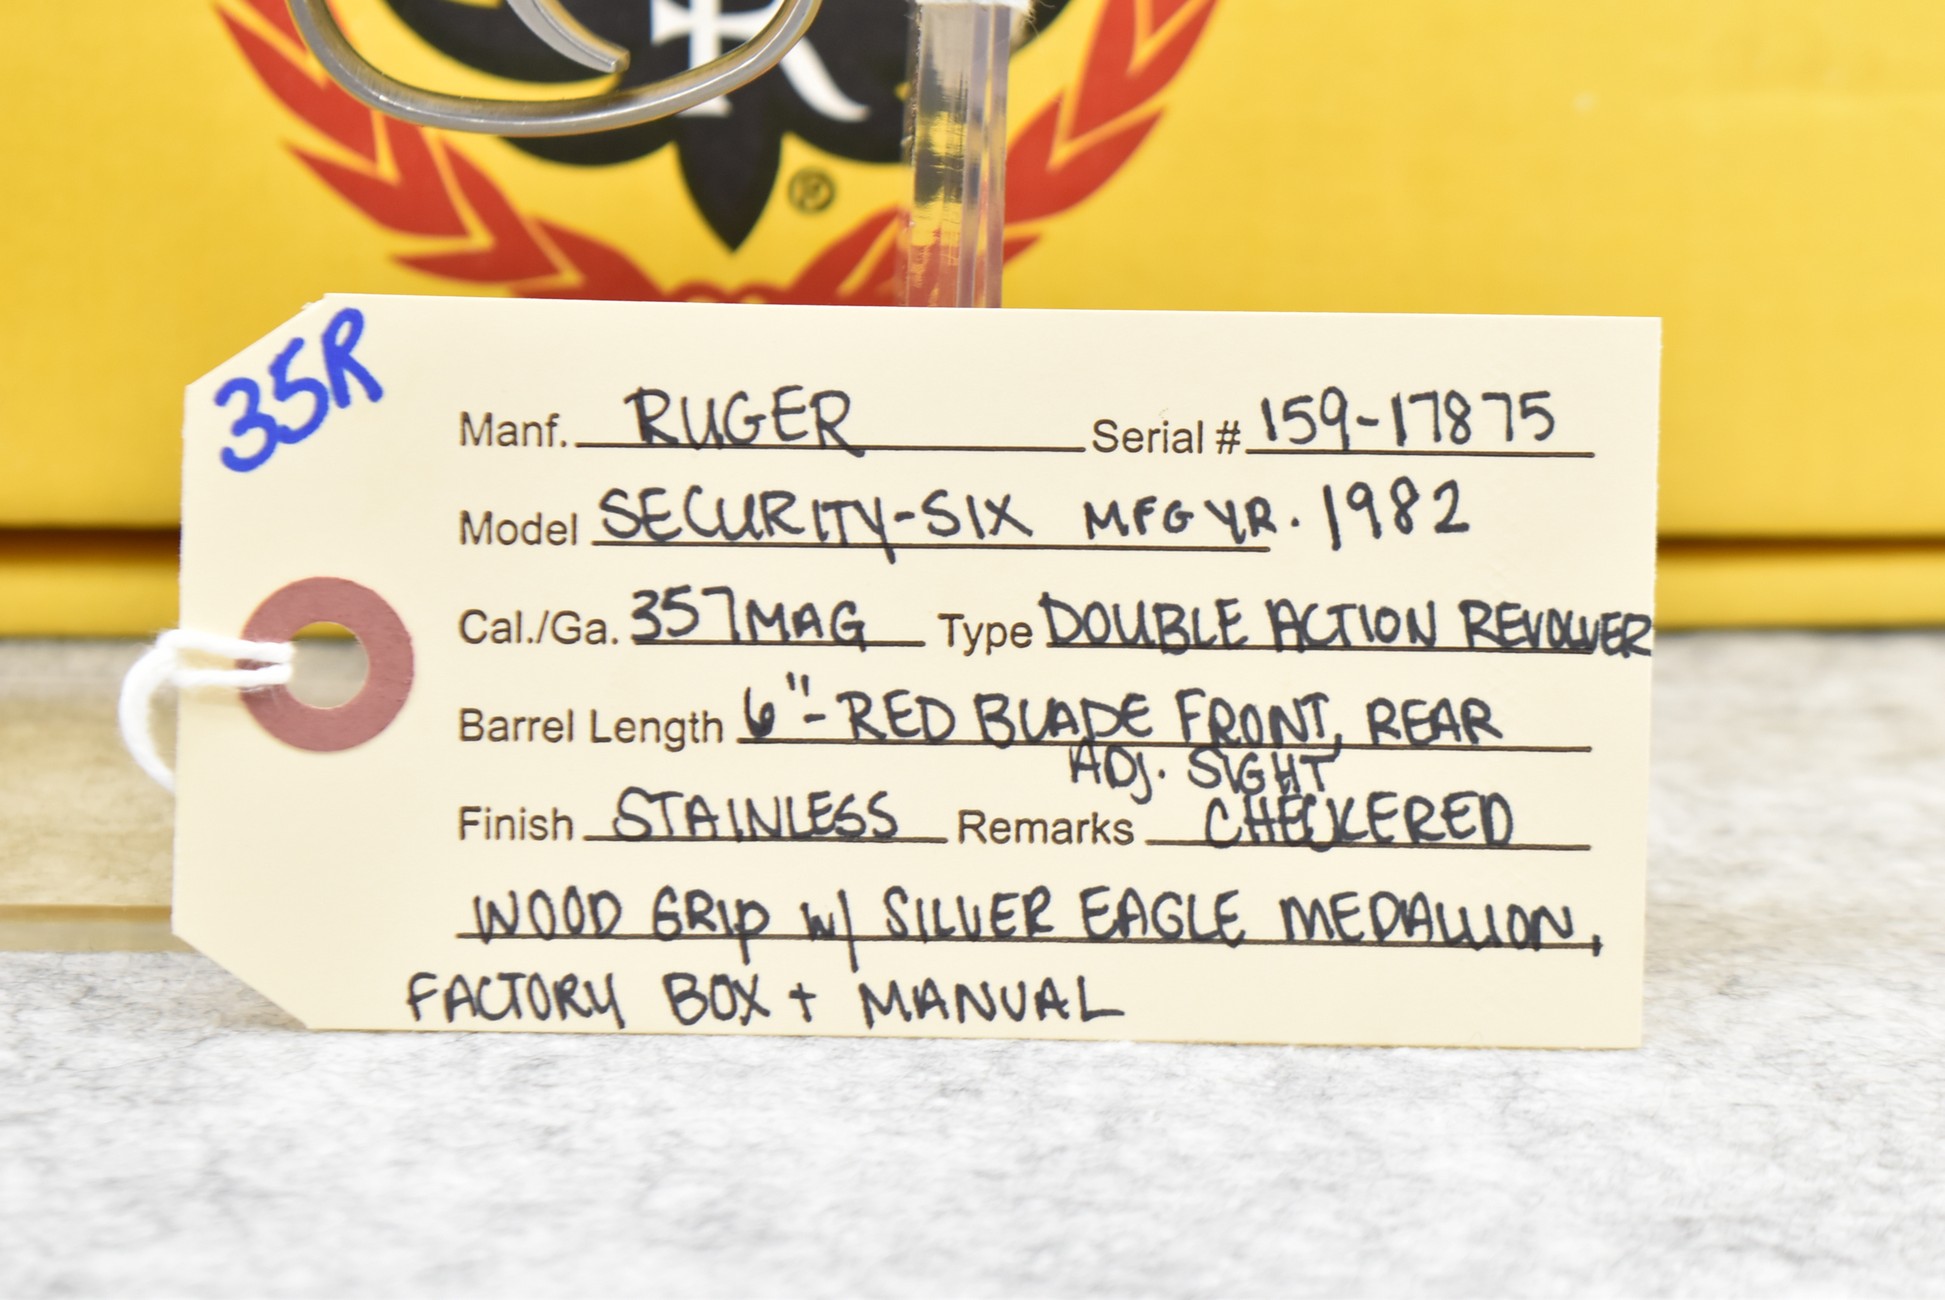 R
®
35R
Manf. RUGER Serial # 159-17875
Model SECURITY-SIX MFG YR. 1982
Cal./Ga. 357MAG Type DOUBLE ACTION REVOLVER
Barrel Length 6"-RED BLADE FRONT, REAR
ADJ. SIGHT
Finish STAINLESS Remarks CHECKERED
WOOD GRIP w/ SILVER EAGLE MEDALLION,
FACTORY BOX + MANUAL